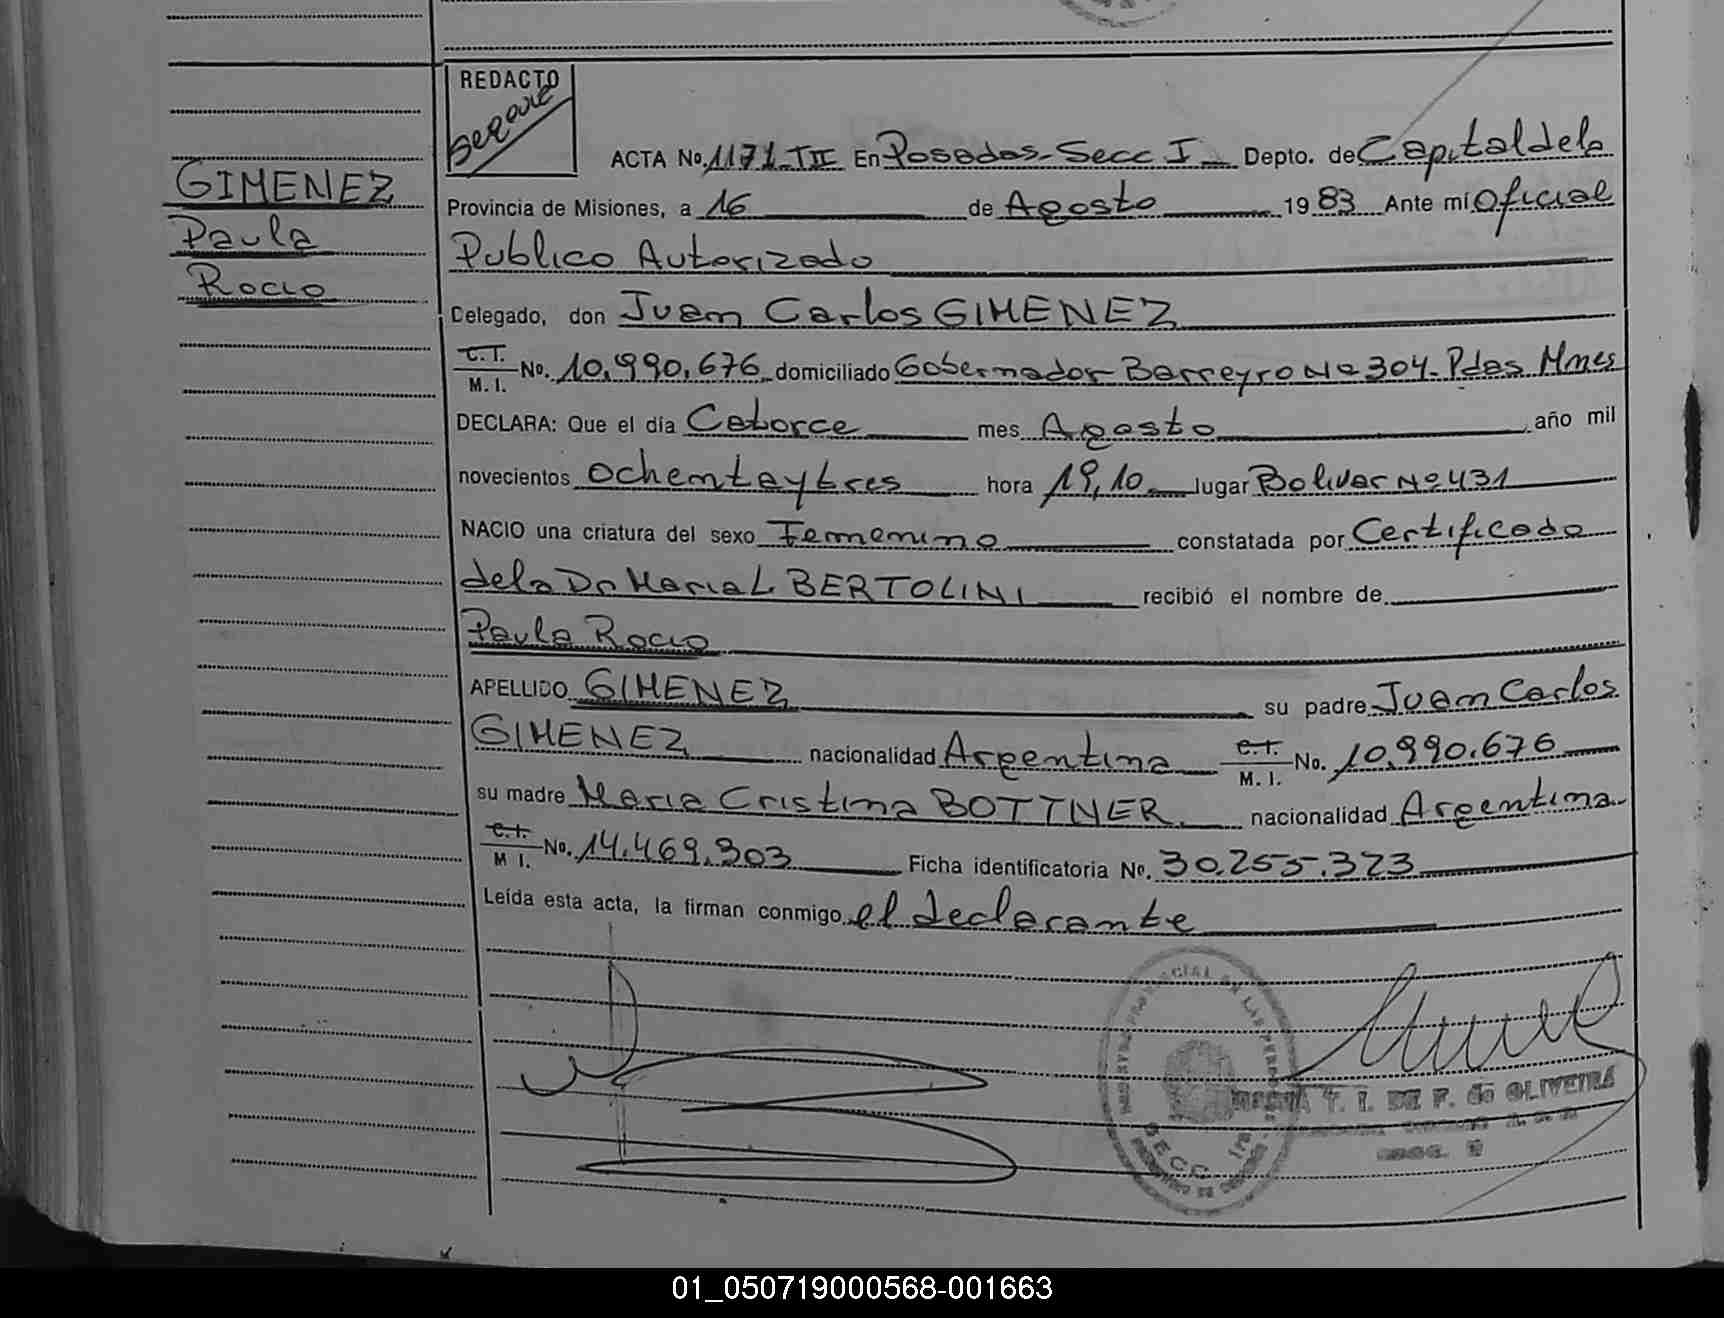 REDACTO
ACTA No. 1171-TII En Posadas-Secc I Depto. de Capital de la
GIMENEZ
Paula
Rocio
Provincia de Misiones, a 16 de Agosto 1983 Ante mí Oficial
Publico Autorizado
Delegado, don Juan Carlos GIMENEZ
C.I.
M. I. No. 10,990.676 domiciliado Gobernador Barreyro Nº 304- Pdas Mnes
DECLARA: Que el día Catorce mes Agosto año mil
novecientos ochenta y tres hora 19,10 lugar Bolivar Nº 431
NACIO una criatura del sexo Femenino constatada por Certificado
de la Dr Maria L BERTOLINI recibió el nombre de
Paula Rocio
APELLIDO GIMENEZ su padre Juan Carlos
GIMENEZ nacionalidad Argentina C.I.
M. I. No. 10,990.676
su madre Maria Cristina BOTTNER nacionalidad Argentina
C.I.
M I. No. 14.469.303 Ficha identificatoria No. 30.255.323
Leída esta acta, la firman conmigo el declarante
T. I. DE F. de OLIVEIRA
SECC 1ra
01_050719000568-001663